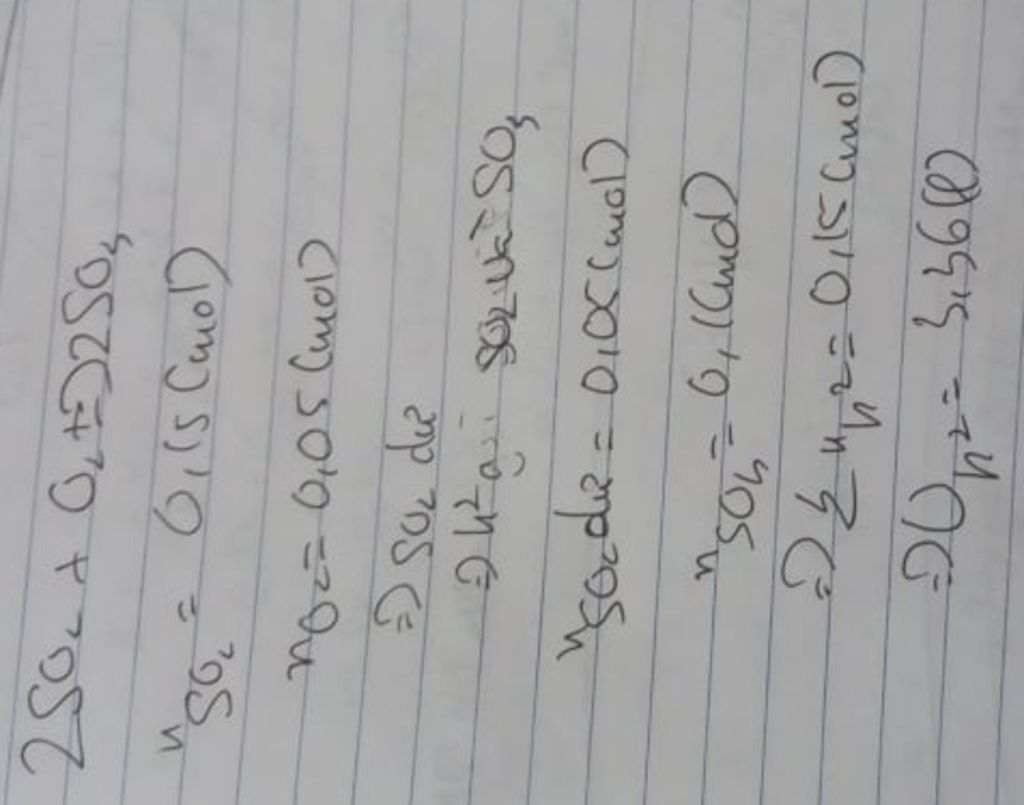 2SO₂ + O₂ ⇌ 2SO₃
n SO₂ = 0,15 (mol)
nO₂ = 0,05 (mol)
=> SO₂ dư
=> h² SO₂ và SO₃
nSO₂ dư = 0,05 (mol)
n SO₃ = 0,1 (mol)
=> Σ n h² = 0,15 (mol)
=> V h² = 3,36 (l)